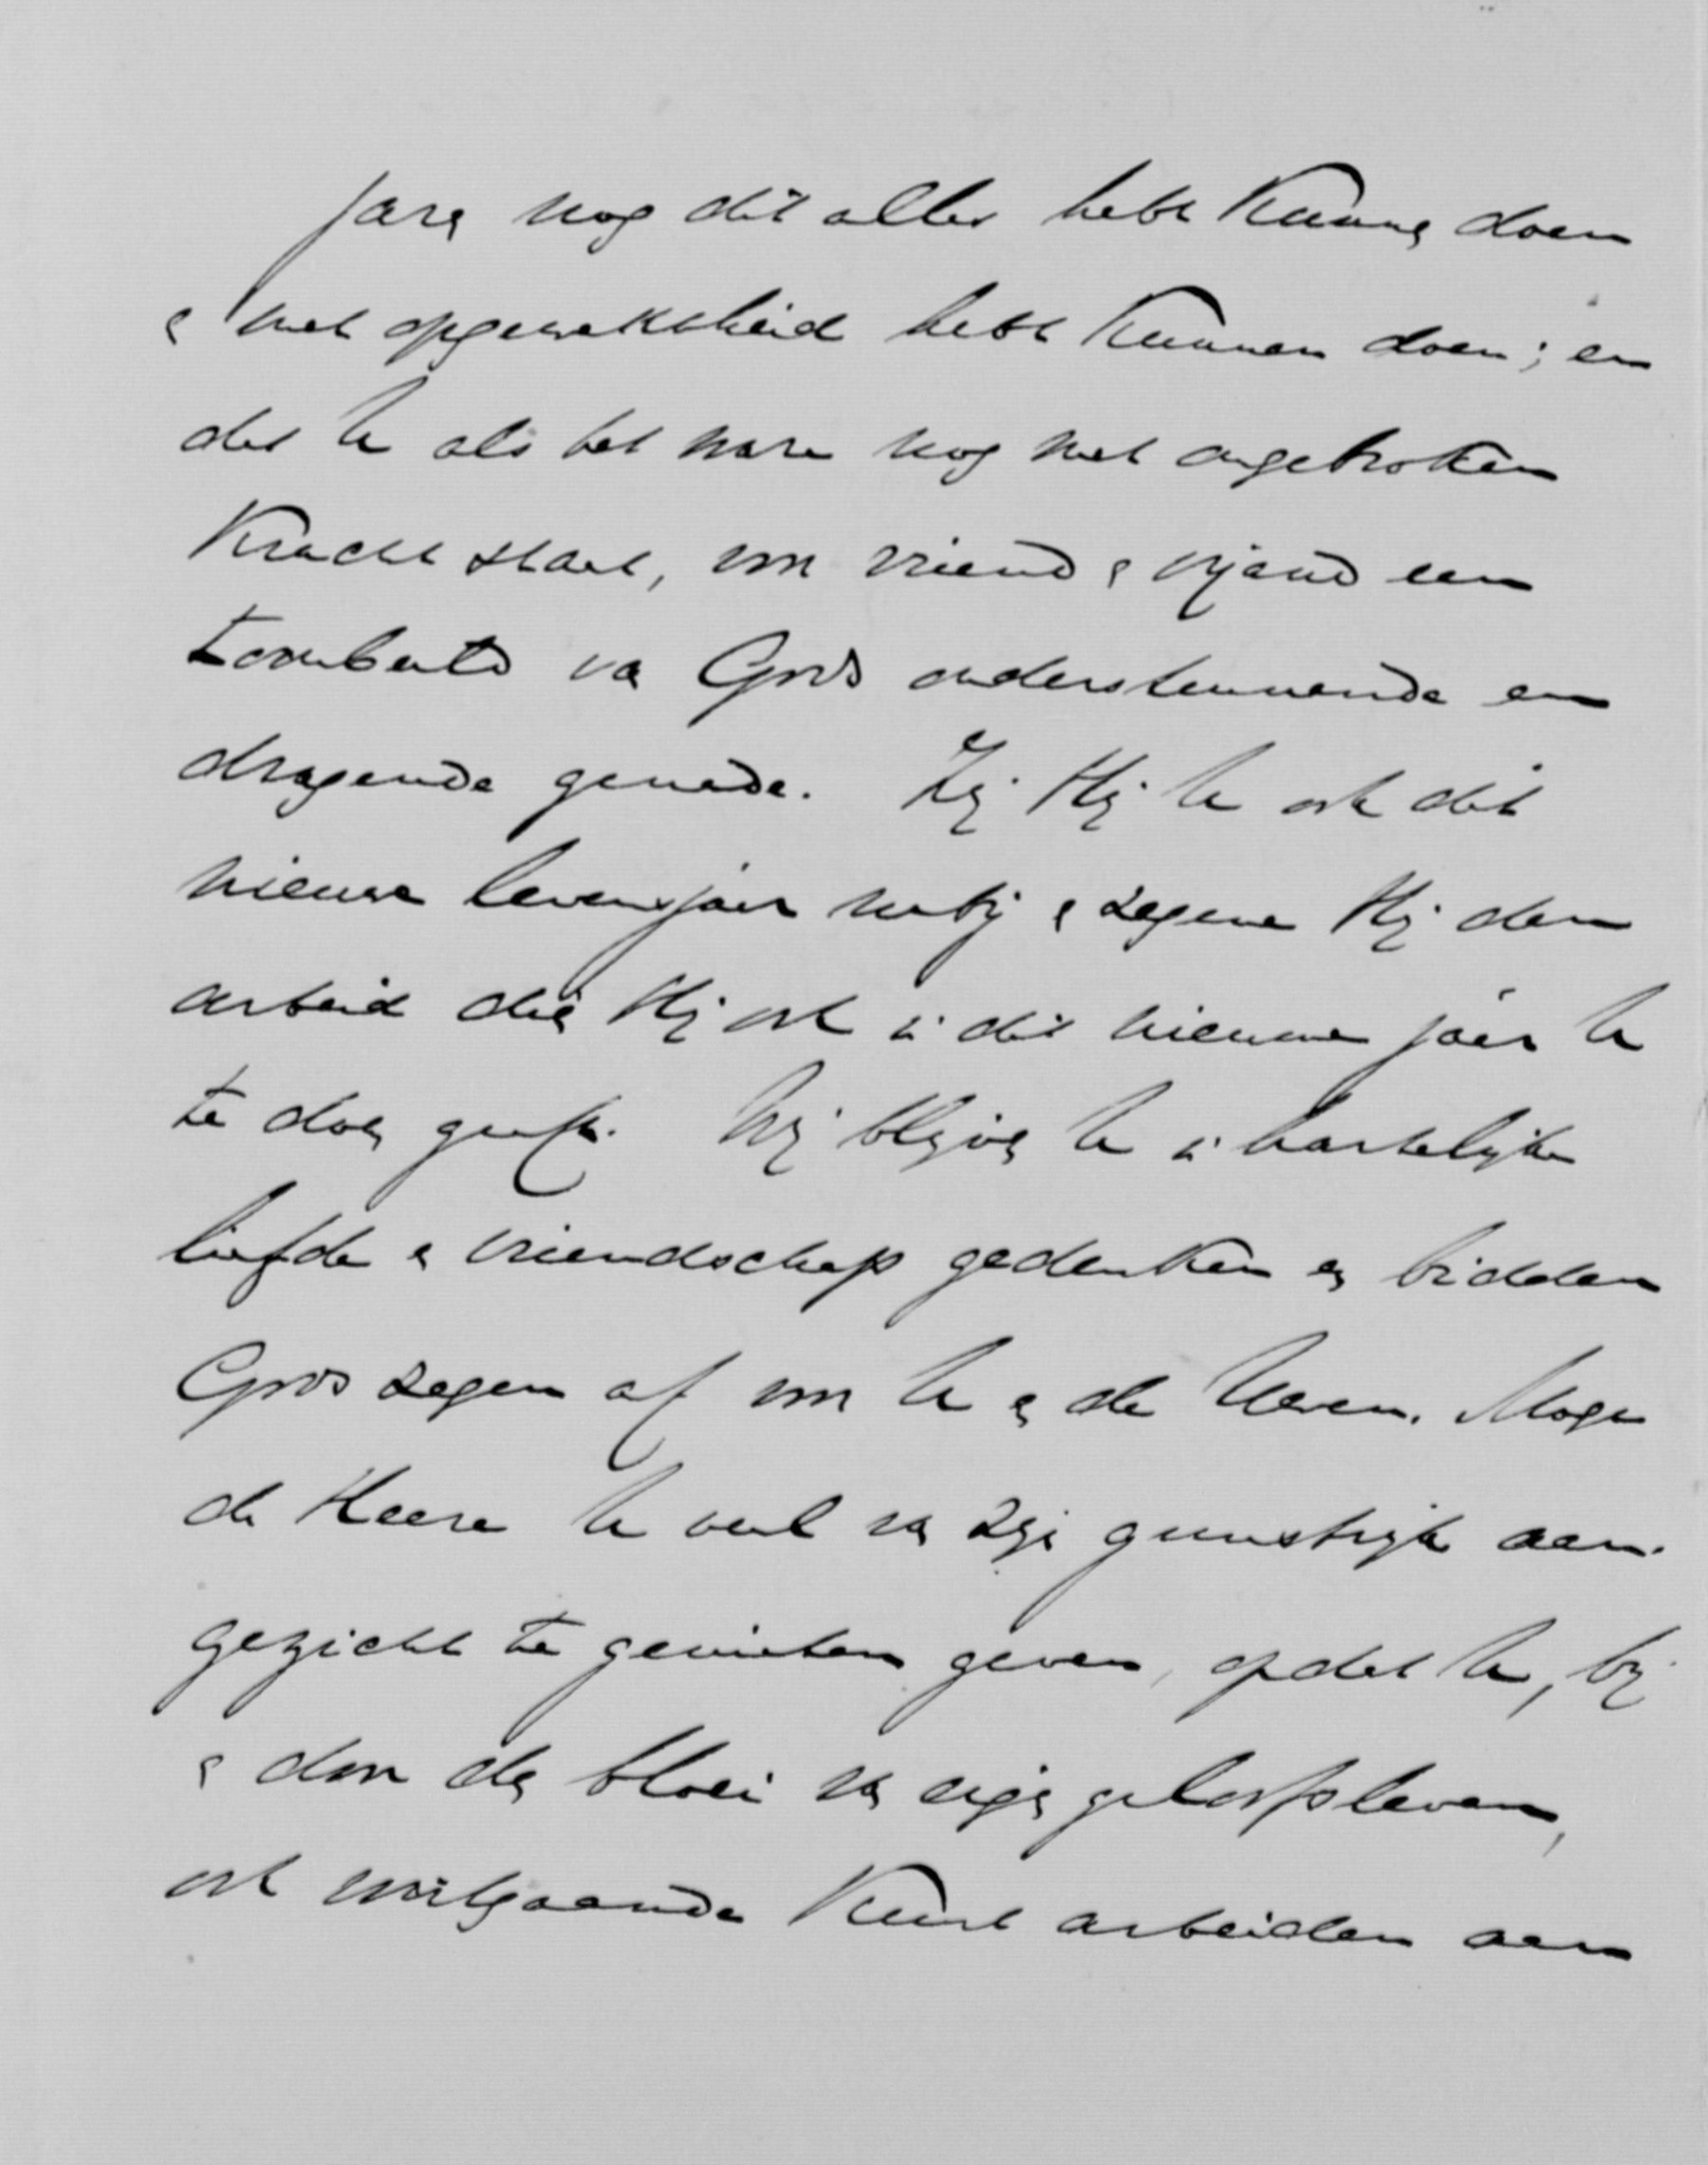 jaren nog dit alles hebt kunnen doen
en met opgewektheid hebt kunnen doen; en
dat U als het ware nog met ongebroken
kracht staat, voor vriend en vijand een
toonbeeld van Gods ondersteunende en
dragende genade. Zij Hij U ook dit
nieuwe levensjaar nabij en zegene Hij den
arbeid dien Hij ook in dit nieuwe jaar U
te doen geeft. Wij blijven U in hartelijke
liefde en vriendschap gedenken en bidden
Gods zegen af voor U en de Uwen. Moge
de Heere U veel van zijn gunstrijk aan-
gezicht te genieten geven, opdat U, bij
en door den bloei van eigen geloofsleven,
ook voortgaande kunt arbeiden aan